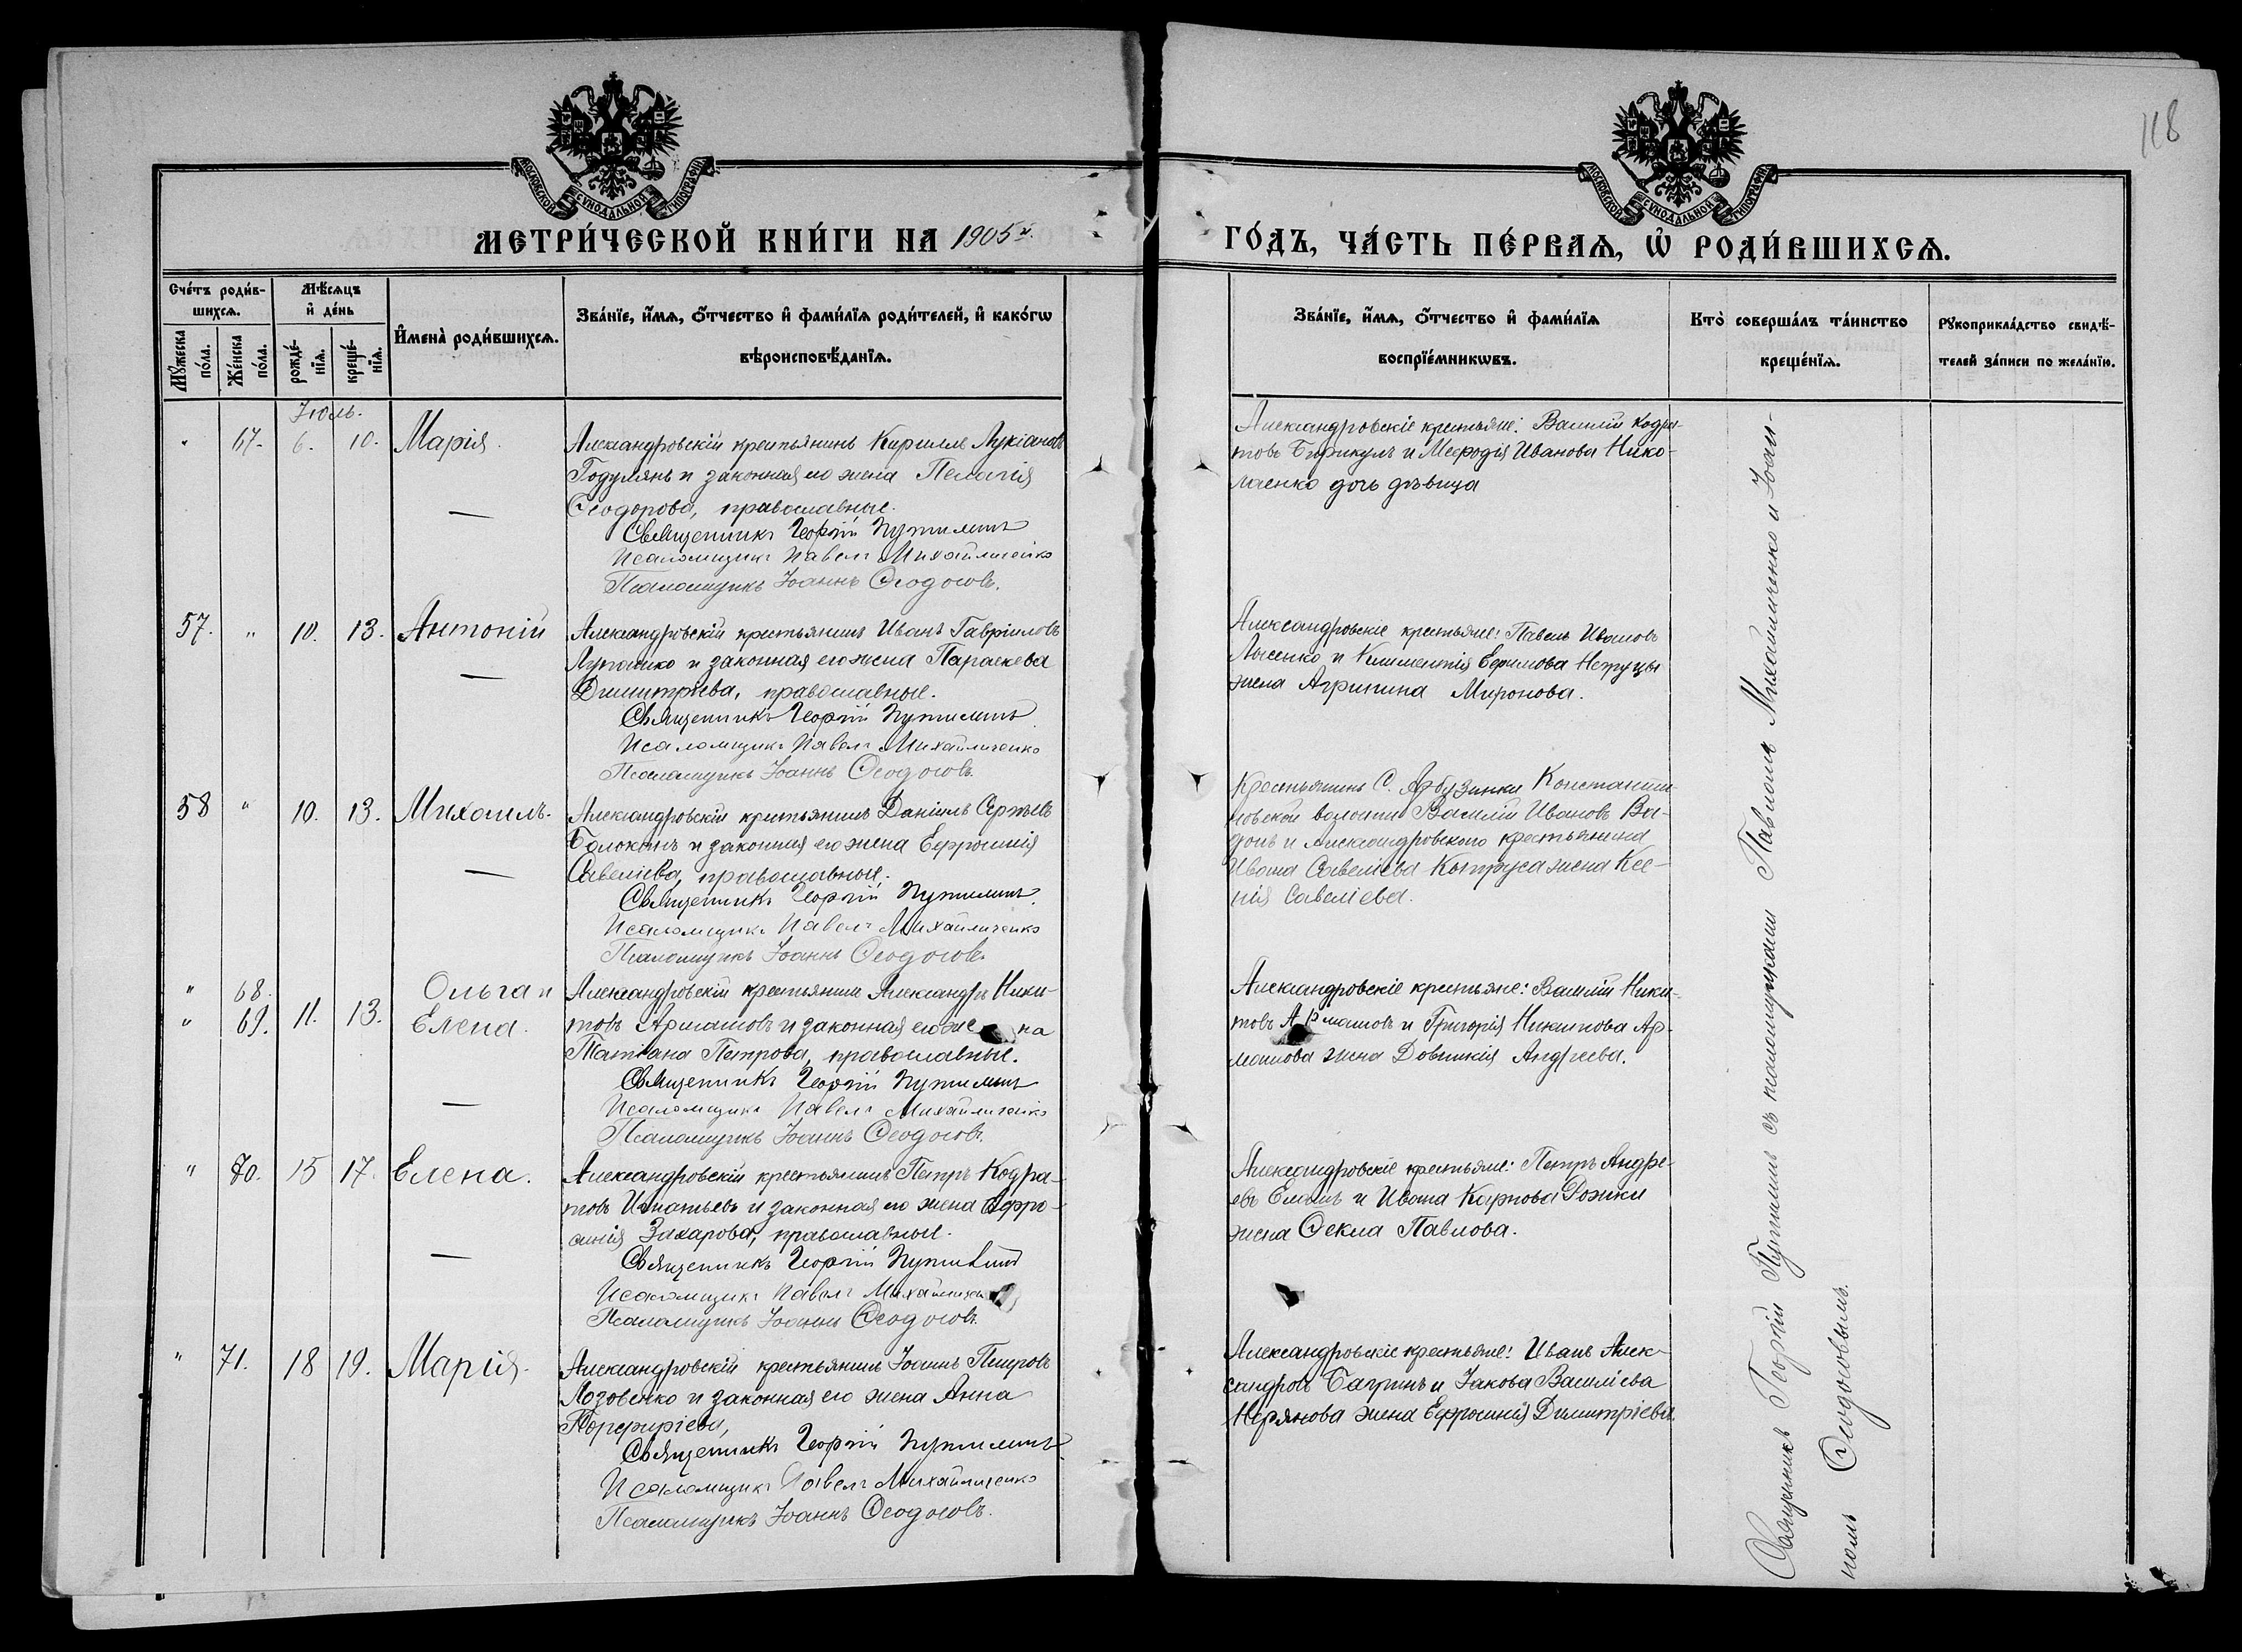 118
МОСКОВСКОЙ СѴНОДАЛЬНОЙ ТИПОГРАФІИ
МОСКОВСКОЙ СѴНОДАЛЬНОЙ ТИПОГРАФІИ
МЕТРИ́ЧЕСКОЙ КНИ́ГИ НА 1905й.
ГО́ДЪ, ЧА́СТЬ ПЕ́РВАѦ, Ѡ҆ РОДИ́ВШИХСѦ.
Сче́тъ роди́в-
шихсѧ.
Мꙋ́жеска по́ла.
Же́нска по́ла.
Мѣ́сѧцъ
и҆ де́нь
рожде́-
нїѧ.
креще́-
нїѧ.
И҆мена̀ роди́вшихсѧ.
Зва́нїе, и҆́мѧ, ѻ҆́тчество и҆ фами́лїѧ роди́телей, и҆ како́гѡ
вѣроисповѣ́данїѧ.
Зва́нїе, и҆́мѧ, ѻ҆́тчество и҆ фами́лїѧ
воспрїе́мникѡвъ.
Кто̀ соверша́лъ та́инство
креще́нїѧ.
Рꙋкоприкла́дство свидѣ́-
телей за́писи по жела́нїю.
Іюль.
" 67. 6. 10. Марія.
Александровскій крестьянинъ Кириллъ Лукіановъ
Годулянъ и законная его жена Пелагія
Ѳеодорова, православные.
Священникъ Георгій Путилинъ
Псаломщикъ Павелъ Михайличенко
Псаломщикъ Іоаннъ Ѳеодосовъ.
Александровскіе крестьяне: Василій Кодра-
товъ и Меѳодія Иванова Нико-
лаенко дочь дѣвица
57. " 10. 13. Антоній
Александровскій крестьянинъ Иванъ Гавріиловъ
Лупашко и законная его жена Параскева
Димитріева, православные.
Священникъ Георгій Путилинъ
Псаломщикъ Павелъ Михайличенко
Псаломщикъ Іоаннъ Ѳеодосовъ.
Александровскіе крестьяне: Павелъ Ивановъ
Лысенко и Климентія Ефимова
жена Агрипина Миронова.
58 " 10. 13. Михаилъ.
Александровскій крестьянинъ Даніилъ Сергѣевъ
Болоканъ и законная его жена Ефросинія
Савеліева, православные.
Священникъ Георгій Путилинъ.
Псаломщикъ Павелъ Михайличенко
Псаломщикъ Іоаннъ Ѳеодосовъ.
Крестьянинъ С. Арбузинки Константи-
новской волости Василій Ивановъ Ва-
донъ и Александровскаго крестьянина
Ивана Савеліева Контруса жена Ксе-
нія Савеліева.
" 68. Ольга и
" 69. 11. 13. Елена.
Александровскій крестьянинъ Александръ Ники-
товъ Армашовъ и законная его же на
Татіана Петрова, православные.
Священникъ Георгій Путилинъ
Псаломщикъ Павелъ Михайличенко
Псаломщикъ Іоаннъ Ѳеодосовъ.
Александровскіе крестьяне: Василій Ники-
товъ Армашовъ и Григорія Никитова Ар-
машова жена Довникія Андреева.
" 70. 15 17. Елена.
Александровскій крестьянинъ Петръ Кодра-
товъ Игнатьевъ и законная его жена Ефро-
синія Захарова, православные.
Священникъ Георгій Путилинъ
Псаломщикъ Павелъ
Псаломщикъ Іоаннъ Ѳеодосовъ.
Александровскіе крестьяне: Петръ Андре-
евъ и Ивана Карпова
жена Ѳекла Павлова.
" 71. 18 19. Марія.
Александровскій крестьянинъ Іоаннъ Петровъ
Лозовенко и законная его жена Анна
Порфиріева,
Священникъ Георгій Путилинъ
Псаломщикъ Павелъ Михайличенко
Псаломщикъ Іоаннъ Ѳеодосовъ.
Александровскіе крестьяне: Иванъ Алек-
сандровъ Багринъ и Іакова Василіева
Нерянова жена Ефросинія Димитріева.
Священникъ Георгій Путилинъ съ псаломщиками Павломъ Михайличенко и Іоан-
номъ Ѳеодосовымъ.